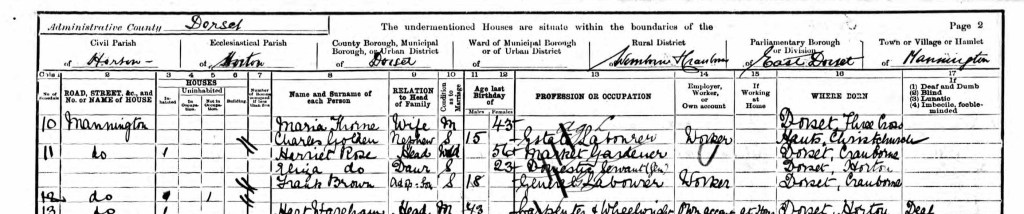 Administrative County Dorset The undermentioned Houses are situate within the boundaries of the Page 2
Civil Parish Ecclesiastical Parish County Borough, Municipal Borough, or Urban District Ward of Municipal Borough or of Urban District Rural District Parliamentary Borough or Division Town or Village or Hamlet
of Horton of Horton of Dorset of of Cranborne of East Dorset of Mannington
Cols. 1 2 3 4 5 6 7 8 9 10 11 12 13 14 15 16 17
No. of Schedule ROAD, STREET, &c., and No. or NAME of HOUSE HOUSES Inhabited Uninhabited In Occupation Not in Occupation Building Number of Rooms occupied if less than five Name and Surname of each Person RELATION to Head of Family Condition as to Marriage Age last Birthday of Males Females PROFESSION OR OCCUPATION Employer, Worker, or Own account If Working at Home WHERE BORN If (1) Deaf and Dumb (2) Blind (3) Lunatic (4) Imbecile, feeble-minded
10 Mannington Maria Thorne Wife M 43 Dorset, Three Cross
Charles Golden Nephew S 15 Estate Labourer Worker Hants, Christchurch
11 do 1 Harriet Rose Head Wd 56 Market Gardener Dorset, Cranborne
Eliza do Daur S 23 Domestic Servant Dorset, Horton
Frank Brown S 18 General Labourer Worker Dorset, Cranborne
12 do 1
13 do 1 Head M 43 Carpenter & Wheelwright Own account Dorset, Horton Deaf